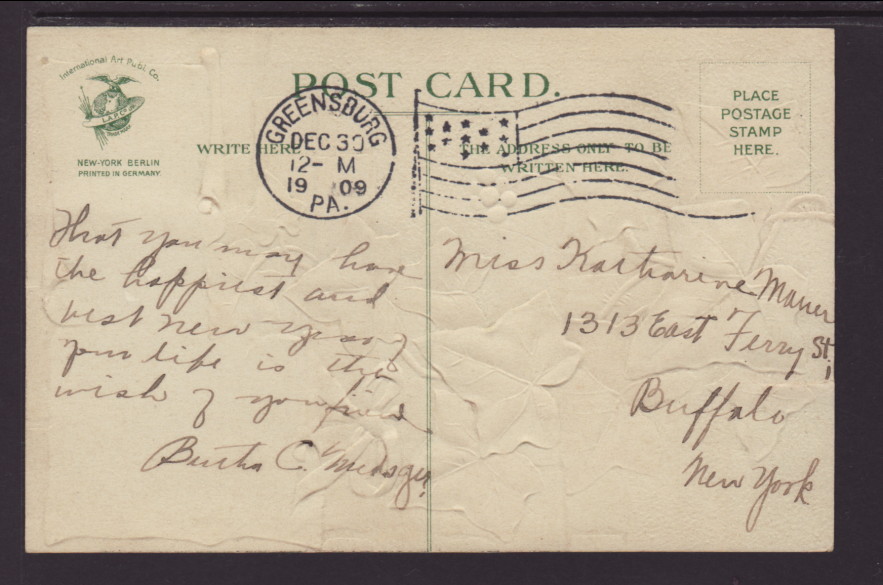 International Art Publ. Co.
NEW-YORK BERLIN
PRINTED IN GERMANY.
POST CARD.
WRITE HERE
THE ADDRESS ONLY TO BE
WRITTEN HERE.
PLACE
POSTAGE
STAMP
HERE.
GREENSBURG
DEC 30
12- M
19 09
PA.
that you may have
the happiest and
best New Year of
your life is the
wish of your friend
Bertha C.
Miss Katharine
1313 East Ferry St.,
Buffalo
New York